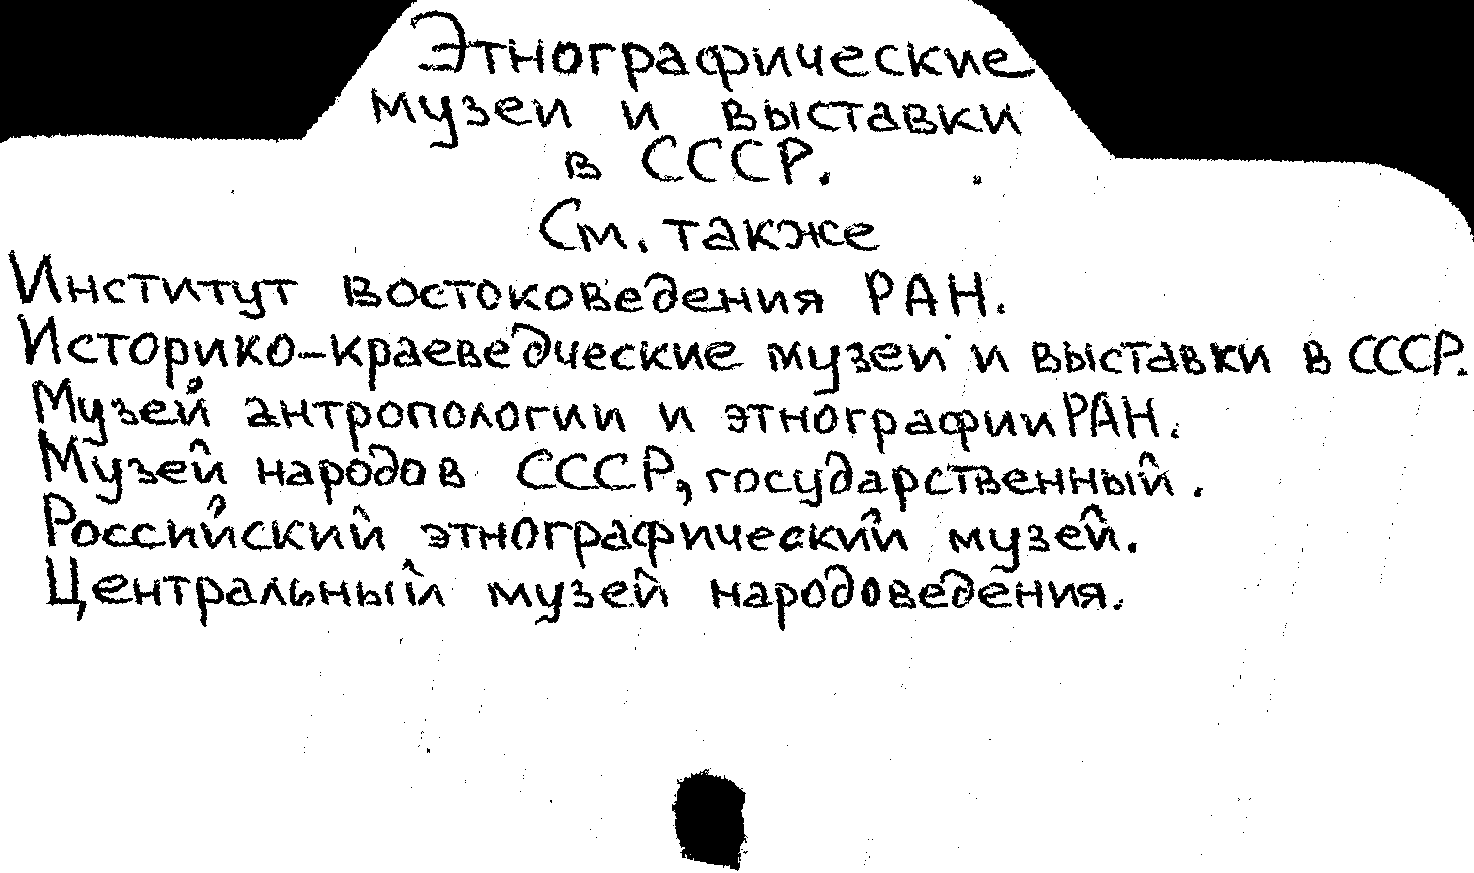 Этнографические
музеи и выставки
в СССР.
См. также
Институт востоковедения РАН.
Историко-краеведческие музеи и выставки в СССР.
Музей антропологии и этнографии РАН.
Музей народов СССР, государственный.
Российский этнографический музей.
Центральный музей народоведения.